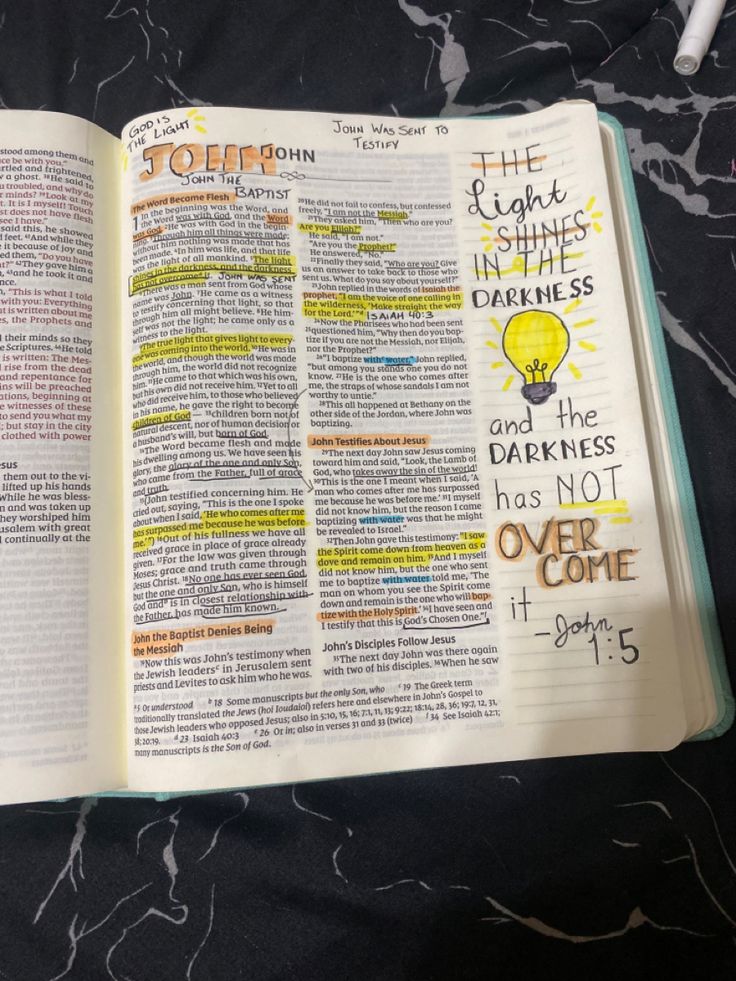 stood among them and
ce be with you."
rtled and frightened,
a ghost. ³⁸He said to
u troubled, and why do
r minds? ³⁹Look at my
t. It is I myself! Touch
st does not have flesh
see I have."
said this, he showed
d feet. ⁴¹And while they
it because of joy and
ed them, "Do you have
?" ⁴²They gave him a
, ⁴³and he took it and
nce.
, "This is what I told
with you: Everything
t is written about me
es, the Prophets and
their minds so they
e Scriptures. ⁴⁶He told
is written: The Mes-
rise from the dead
and repentance for
ins will be preached
ations, beginning at
e witnesses of these
o send you what my
; but stay in the city
clothed with power
sus
them out to the vi-
lifted up his hands
While he was bless-
n and was taken up
hey worshiped him
usalem with great
continually at the
GOD IS
THE LIGHT
JOHN JOHN
JOHN THE
BAPTIST
The Word Became Flesh
1 In the beginning was the Word, and
the Word was with God, and the Word
was God. ²He was with God in the begin-
ning. ³Through him all things were made;
without him nothing was made that has
been made. ⁴In him was life, and that life
was the light of all mankind. ⁵The light
shines in the darkness, and the darkness
has not overcome it. JOHN WAS SENT
⁶There was a man sent from God whose
name was John. ⁷He came as a witness
to testify concerning that light, so that
through him all might believe. ⁸He him-
self was not the light; he came only as a
witness to the light.
⁹The true light that gives light to every-
one was coming into the world. ¹⁰He was in
the world, and though the world was made
through him, the world did not recognize
him. ¹¹He came to that which was his own,
but his own did not receive him. ¹²Yet to all
who did receive him, to those who believed
in his name, he gave the right to become
children of God— ¹³children born not of
natural descent, nor of human decision or
a husband's will, but born of God.
¹⁴The Word became flesh and made
his dwelling among us. We have seen his
glory, the glory of the one and only Son,
who came from the Father, full of grace
and truth.
¹⁵(John testified concerning him. He
cried out, saying, "This is the one I spoke
about when I said, 'He who comes after me
has surpassed me because he was before
me.'") ¹⁶Out of his fullness we have all
received grace in place of grace already
given. ¹⁷For the law was given through
Moses; grace and truth came through
Jesus Christ. ¹⁸No one has ever seen God,
but the one and only Son, who is himself
God and ᵇ is in closest relationship with
the Father, has made him known.
John the Baptist Denies Being
the Messiah
¹⁹Now this was John's testimony when
the Jewish leaders ᶜ in Jerusalem sent
priests and Levites to ask him who he was.
JOHN WAS SENT TO
TESTIFY
²⁰He did not fail to confess, but confessed
freely, "I am not the Messiah."
²¹They asked him, "Then who are you?
Are you Elijah?"
He said, "I am not."
"Are you the Prophet?"
He answered, "No."
²²Finally they said, "Who are you? Give
us an answer to take back to those who
sent us. What do you say about yourself?"
²³John replied in the words of Isaiah the
prophet, "I am the voice of one calling in
the wilderness, 'Make straight the way
for the Lord.'" ᵈ ISAIAH 40:3
²⁴Now the Pharisees who had been sent
²⁵questioned him, "Why then do you bap-
tize if you are not the Messiah, nor Elijah,
nor the Prophet?"
²⁶"I baptize with ᵉ water," John replied,
"but among you stands one you do not
know. ²⁷He is the one who comes after
me, the straps of whose sandals I am not
worthy to untie."
²⁸This all happened at Bethany on the
other side of the Jordan, where John was
baptizing.
John Testifies About Jesus
²⁹The next day John saw Jesus coming
toward him and said, "Look, the Lamb of
God, who takes away the sin of the world!
³⁰This is the one I meant when I said, 'A
man who comes after me has surpassed
me because he was before me.' ³¹I myself
did not know him, but the reason I came
baptizing with water was that he might
be revealed to Israel."
³²Then John gave this testimony: "I saw
the Spirit come down from heaven as a
dove and remain on him. ³³And I myself
did not know him, but the one who sent
me to baptize with water told me, 'The
man on whom you see the Spirit come
down and remain is the one who will bap-
tize with the Holy Spirit.' ³⁴I have seen and
I testify that this is God's Chosen One." ᶠ
John's Disciples Follow Jesus
³⁵The next day John was there again
with two of his disciples. ³⁶When he saw
ᵃ 5 Or understood ᵇ 18 Some manuscripts but the only Son, who ᶜ 19 The Greek term
traditionally translated the Jews (hoi Ioudaioi) refers here and elsewhere in John's Gospel to
those Jewish leaders who opposed Jesus; also in 5:10, 15, 16; 7:1, 11, 13; 9:22; 18:14, 28, 36; 19:7, 12, 31,
38; 20:19. ᵈ 23 Isaiah 40:3 ᵉ 26 Or in; also in verses 31 and 33 (twice) ᶠ 34 See Isaiah 42:1;
many manuscripts is the Son of God.
THE
Light
SHINES
IN THE
DARKNESS
and the
DARKNESS
has NOT
OVER
COME
it
- John
1:5